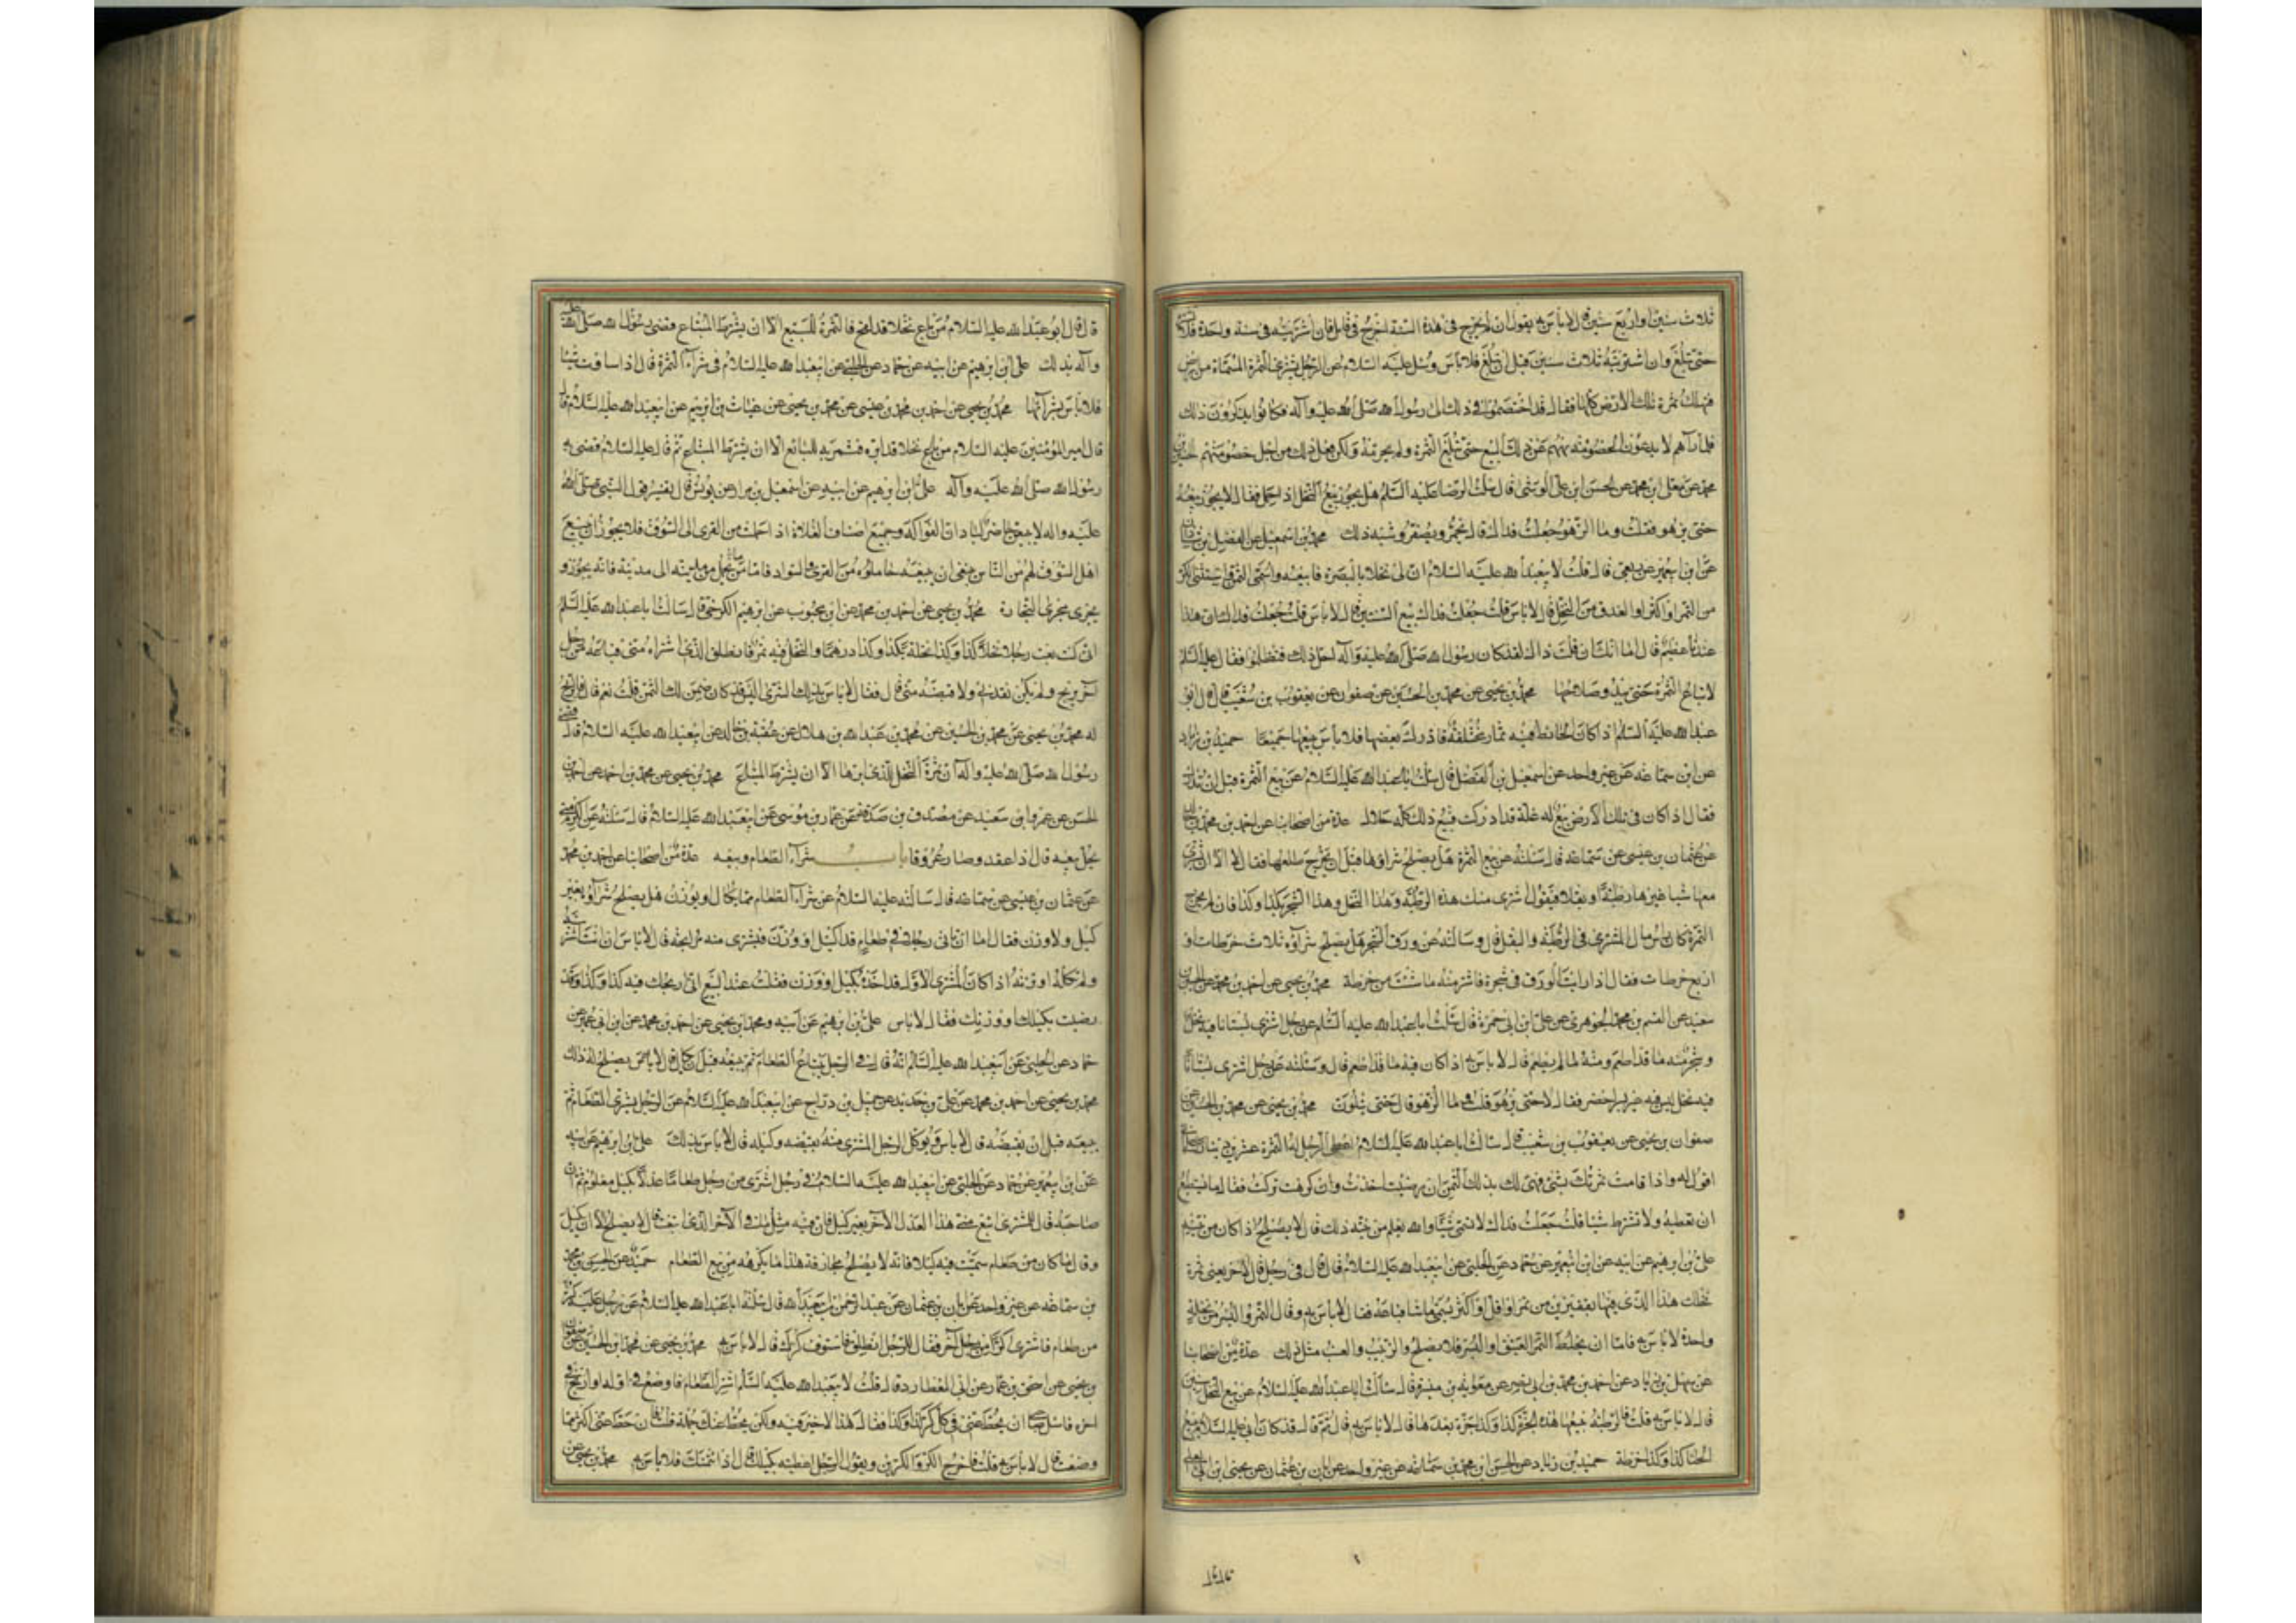 ثلاث سنين او اربع سنين قال لا باس به يقول ان لم يخرج في هذه السنة اخرج في قابل فان اشتريته في سنة واحدة فلا تشتره
حتى تبلغ وان اشتريته ثلاث سنين قبل ان تبلغ فلا باس وسئل عليه السلام عن الرجل يشتري الثمرة المسماة من ارض
فهلك ثمرة تلك الارض كلها فقال قد اختصموا في ذلك الى رسول الله صلى الله عليه وآله فكانوا يذكرون ذلك
فلما رآهم لا يدعون الخصومة نهاهم عن ذلك البيع حتى تبلغ الثمرة ولم يحرمه ولكن فعل ذلك من اجل خصومتهم الحسين بن
محمد عن معلى ابن محمد عن الحسن ابن علي الوشا قال سئلت الرضا عليه السلام هل يجوز بيع النخل اذا حمل فقال لا يجوز بيعه
حتى يزهو فقلت وما الزهو جعلت فداك قال يحمر ويصفر وشبه ذلك محمد بن اسمعيل عن الفضل بن شاذان
عن ابن ابيعمير عن ربعي قال قلت لابيعبدالله عليه السلام ان لي نخلا بالبصرة فابيعه واسمي الثمن واستثني الكر
من التمر او اكثر او العذق من النخل قال لا باس قلت جعلت فداك بيع السنتين قال لا باس قلت جعلت فداك ان هذا
عندنا عظيم قال اما انك ان قلت ذاك لقد كان رسول الله صلى الله عليه وآله احل ذلك فتظالموا فقال عليه السلم
لا تباع الثمرة حتى يبدو صلاحها محمد بن يحيى عن محمد بن الحسين عن صفوان عن يعقوب بن شعيب قال قال ابو
عبدالله عليه السلم اذا كان الحائط فيه ثمار مختلفة فادرك بعضها فلا باس ببيعها جميعا حميد بن زياد
عن ابن سماعه عن غير واحد عن اسمعيل بن الفضل قال سئلت اباعبدالله عليه السلام عن بيع الثمرة قبل ان تدرك
فقال اذا كان في تلك الارض بيع له غلة قد ادركت فبيع ذلك كله حلال عدة من اصحابنا عن احمد بن محمد بن خالد
عن عثمان بن عيسى عن سماعة قال سئلته عن بيع الثمرة هل يصلح شراؤها قبل ان يخرج طلعها فقال لا الا ان يشتري
معها شيا غيرها رطبة او بقلا فيقول اشتري منك هذه الرطبة وهذا النخل وهذا الشجر بكذا وكذا فان لم يخرج
الثمرة كان راس مال المشتري في الرطبة والبقل قال وسالته عن ورق الشجر هل يصلح شراؤه ثلاث خرطات او
اربع خرطات فقال اذا رايت الورق في شجرة فاشتر منه ما شئت من خرطة محمد بن يحيى عن احمد بن محمد عن الحسين بن
سعيد عن القسم بن محمد الجوهري عن علي ابن ابي حمزة قال سئلت اباعبدالله عليه السلم عن رجل اشترى بستانا فيه نخل
وشجر منه ما قد اطعم ومنه ما لم يطعم قال لا باس به اذا كان فيه ما قد اطعم قال وسئلته عن رجل اشترى بستانا
فيه نخل ليس فيه غير بسر اخضر فقال لا حتى يزهو قلت وما الزهو قال حتى يتلون محمد بن يحيى عن محمد بن الحسين عن
صفوان بن يحيى عن يعقوب بن شعيب قال سئالت اباعبدالله عليه السلام اعطي الرجل له الثمرة عشرين دينارا على اني
اقول له اذا قامت ثمرتك بشيء فهي لك بذلك الثمن ان رضيت اخذت وان كرهت تركت فقال ما تستطيع
ان تعطيه ولا تشترط شيا قلت جعلت فداك لا تسمي شيا والله يعلم من نيته ذلك قال لا يصلح اذا كان من نيته
علي بن ابرهيم عن ابيه عن ابن ابيعمير عن حماد عن الحلبي عن ابيعبدالله عليه السلام قال قال في رجل قال لاخر بعني ثمرة
نخلك هذا الذي فيها بقفيزين من تمر او اقل او اكثر يسمي ما شا فباعه فقال لا باس به وقال التمر والبسر من نخلة
واحدة لا باس به فاما ان يخلط التمر العتيق او البسر فلا يصلح والزبيب والعنب مثل ذلك عدة من اصحابنا
عن سهل بن زياد عن احمد بن محمد بن ابي نصير عن معوية بن ميسرة قال سئالت اباعبدالله عليه السلام عن بيع النخل سنين
قال لا باس به قلت فالرطبة يبيعها هذه الجزة وكذا وكذا جزة بعدها قال لا باس به قال ثم قال قد كان ابي عليه السلام يبيع
الحنا كذا وكذا خرطة حميد بن زياد عن الحسن ابن محمد بن سماعه عن غير واحد عن ابان بن عثمان عن يحيى ابن ابي العلا
قال قال ابوعبدالله عليه السلام من باع نخلا قد لقح فالثمرة للبيع الا ان يشترط المبتاع قضى رسول الله صلى الله عليه
وآله بذلك علي ابن ابرهيم عن ابيه عن حماد عن الحلبي عن ابيعبدالله عليه السلام في شراء الثمرة قال اذا ساوت شيئا
فلا باس بشرائها محمد بن يحيى عن احمد بن محمد بن عيسى عن محمد بن يحيى عن غياث بن ابرهيم عن ابيعبدالله عليه السلام قال
قال امير المؤمنين عليه السلام من باع نخلا قد ابره فثمرته للبائع الا ان يشترط المبتاع ثم قال عليه السلام قضى به
رسول الله صلى الله عليه وآله علي ابن ابرهيم عن ابيه عن اسمعيل بن مرار عن يونس قال تفسير قول النبي صلى الله
عليه واله لا يبيعن حاضر لباد ان الفواكه وجميع اصناف الغلات اذا حملت من القرى الى السوق فلا يجوز ان يبيع
اهل السوق لهم من الناس ينبغي ان يبيعه حاملوه من القرى والسواد فاما من يحمل من مدينة الى مدينة فانه يجوز و
يجري مجرى التجارة محمد بن يحيى عن احمد بن محمد عن ابن محبوب عن ابرهيم الكرخي قال سئالت اباعبدالله عليه السلم
اني كنت بعت رجلا نخلا كذا وكذا نخلة بكذا وكذا درهما والنخل فيه ثمر فانطلق الذي اشتراه مني فباعه من رجل
آخر بربح ولم يكن نقدني ولا قبضه مني قال فقال لا باس بذلك الشرى اليس قد كان ضمن لك الثمن قلت نعم قال فالربح
له محمد بن يحيى عن محمد بن الحسين عن محمد بن عبدالله بن هلال عن عقبة بن خالد عن ابيعبدالله عليه السلام قال قضى
رسول الله صلى الله عليه واله ان ثمرة النخل للذي ابرها الا ان يشترط المبتاع محمد بن يحيى عن محمد بن احمد عن احمد بن
الحسن عن عمرو بن سعيد عن مصدق بن صدقة عن عمار بن موسى عن ابيعبدالله عليه السلام قال سئلته عن الكرم متى
يحل بيعه قال اذا عقد وصار عروقا باب شراء الطعام وبيعه عدة من اصحابنا عن احمد بن محمد
عن عثمان بن عيسى عن سماعه قال سالته عليه السلام عن شراء الطعام مما يكال او يوزن هل يصلح شراؤه بغير
كيل ولا وزن فقال اما ان تاتي رجلا في طعام قد اكتيل او وزن فيشتري منه مرابحة قال لا باس ان انت اشتريته
ولم تكله او تزنه اذا كان المشتري الاول قد اخذه بكيل او وزن فقلت عند البيع اني اربحك فيه كذا وكذا وقد
رضيت بكيلك او وزنك فقال لا باس علي بن ابرهيم عن ابيه ومحمد بن يحيى عن احمد بن محمد عن ابن ابي عمير عن
حماد عن الحلبي عن ابيعبدالله عليه السلم انه قال في الرجل يبتاع الطعام ثم يبيعه قبل ان يكال قال لا يصلح له ذلك
محمد بن يحيى عن احمد بن محمد عن علي بن حديد عن جميل بن دراج عن ابيعبدالله عليه السلام عن الرجل يشتري الطعام ثم
يبيعه قبل ان يقبضه قال لا باس ويوكل الرجل المشتري منه بقبضه وكيله قال لا باس بذلك علي بن ابرهيم عن ابيه
عن ابن ابيعمير عن حماد عن الحلبي عن ابيعبدالله عليه السلام في رجل اشترى من رجل طعاما عدلا بكيل معلوم ثم ان
صاحبه قال للمشتري ابتع مني هذا العدل الآخر بغير كيل فان فيه مثل ما في الآخر الذي ابتعت قال لا يصلح الا ان يكيل
وقال ما كان من طعام سميت فيه كيلا فانه لا يصلح مجازفة هذا ما يكره من بيع الطعام حميد عن الحسن بن محمد
بن سماعه عن غير واحد عن ابان بن عثمان عن عبد الرحمن بن ابيعبدالله قال سئلت اباعبدالله عليه السلام عن رجل عليه كر
من طعام فاشترى كرا من رجل آخر فقال للرجل انطلق فاستوف كرك قال لا باس به محمد بن يحيى عن محمد ابن الحسين عن صفوان
بن يحيى عن اسحق بن عمار عن ابي العطارد قال قلت لابيعبدالله عليه السلم اشتري الطعام فاوضع في اوله واربح في
آخره فاسئل صاحبي ان يحط عني في كل كر كذا وكذا فقال هذا لا خير فيه ولكن يحط عنك جملة قلت فان حط عني اكثر مما
وضعت قال لا باس به قلت فاخرج الكر والكرين ويقول الرجل اعطنيه بكيلك قال اذا ائتمنك فلا باس به محمد بن يحيى عن